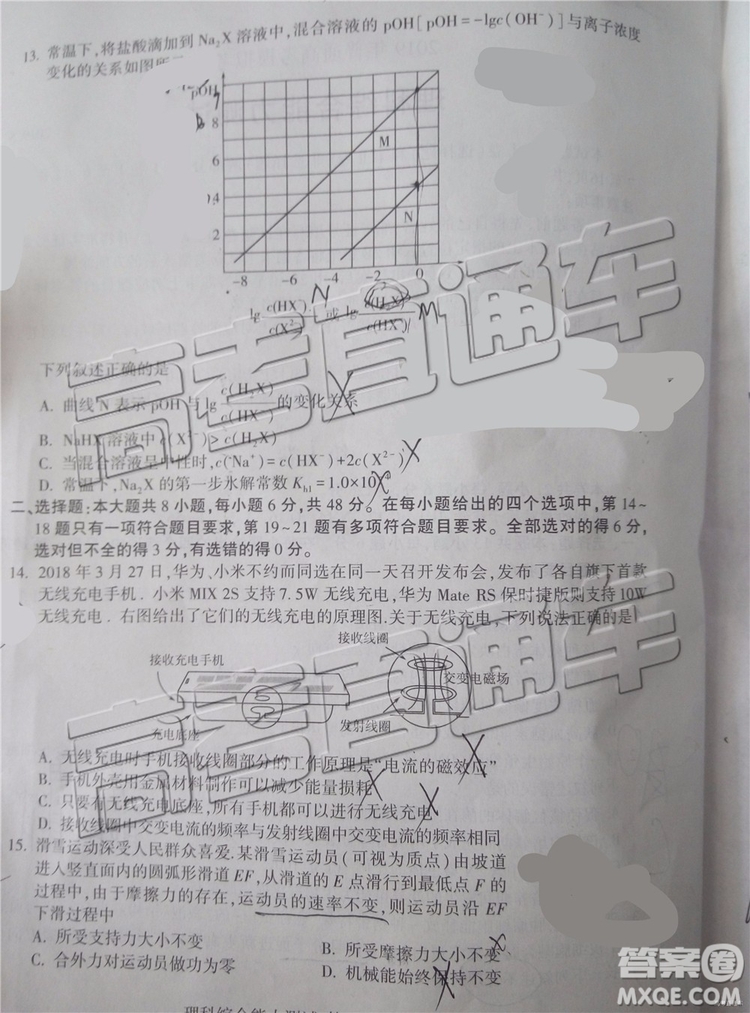 13. 常温下,将盐酸滴加到 Na₂X 溶液中,混合溶液的 pOH[pOH=-lgc(OH⁻)]与离子浓度
变化的关系如图所
pOH
8
6
4
2
M
N
-8 -6 -4 -2 0
N M
lg c(HX⁻)/c(X²⁻) 或 lg c(H₂X)/c(HX⁻)
下列叙述正确的是
A. 曲线 N 表示 pOH 与 lg c(H₂X)/c(HX⁻) 的变化关系
B. NaHX 溶液中 c(X²⁻)>c(H₂X)
C. 当混合溶液呈中性时,c(Na⁺)=c(HX⁻)+2c(X²⁻)
D. 常温下,Na₂X 的第一步水解常数 Kh1=1.0×10
二、选择题:本大题共 8 小题,每小题 6 分,共 48 分。在每小题给出的四个选项中,第 14~
18 题只有一项符合题目要求,第 19~21 题有多项符合题目要求。全部选对的得 6 分,
选对但不全的得 3 分,有选错的得 0 分。
14. 2018 年 3 月 27 日,华为、小米不约而同选在同一天召开发布会,发布了各自旗下首款
无线充电手机. 小米 MIX 2S 支持 7.5W 无线充电,华为 Mate RS 保时捷版则支持 10W
无线充电. 右图给出了它们的无线充电的原理图.关于无线充电,下列说法正确的是
接收线圈
接收充电手机
交变电磁场
充电底座
发射线圈
A. 无线充电时手机接收线圈部分的工作原理是“电流的磁效应”
B. 手机外壳用金属材料制作可以减少能量损耗
C. 只要有无线充电底座,所有手机都可以进行无线充电
D. 接收线圈中交变电流的频率与发射线圈中交变电流的频率相同
15. 滑雪运动深受人民群众喜爱.某滑雪运动员(可视为质点)由坡道
进入竖直面内的圆弧形滑道 EF,从滑道的 E 点滑行到最低点 F 的
过程中,由于摩擦力的存在,运动员的速率不变,则运动员沿 EF
下滑过程中
A. 所受支持力大小不变 B. 所受摩擦力大小不变
C. 合外力对运动员做功为零 D. 机械能始终保持不变
高考直通车
高考直通车
答案圈
MXQE.COM